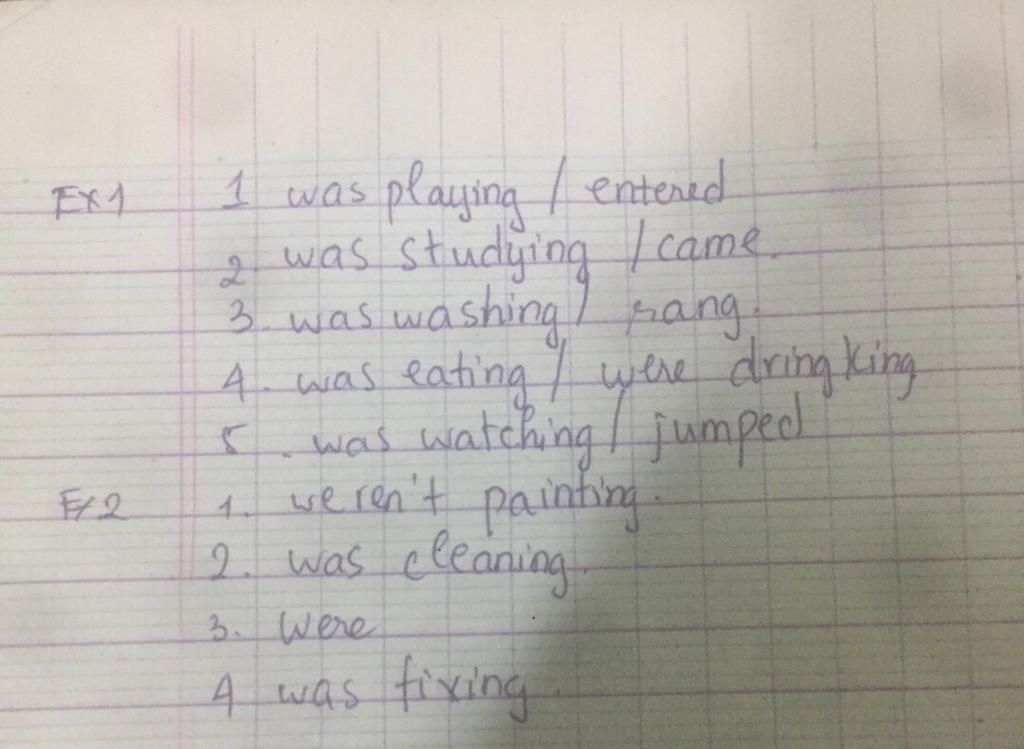 Ex1 1 was playing / entered
2 was studying / came.
3. was washing / rang.
4. was eating / were dringking
5. was watching / jumped
Ex2 1. weren't painting.
2. was cleaning.
3. were
4 was fixing.